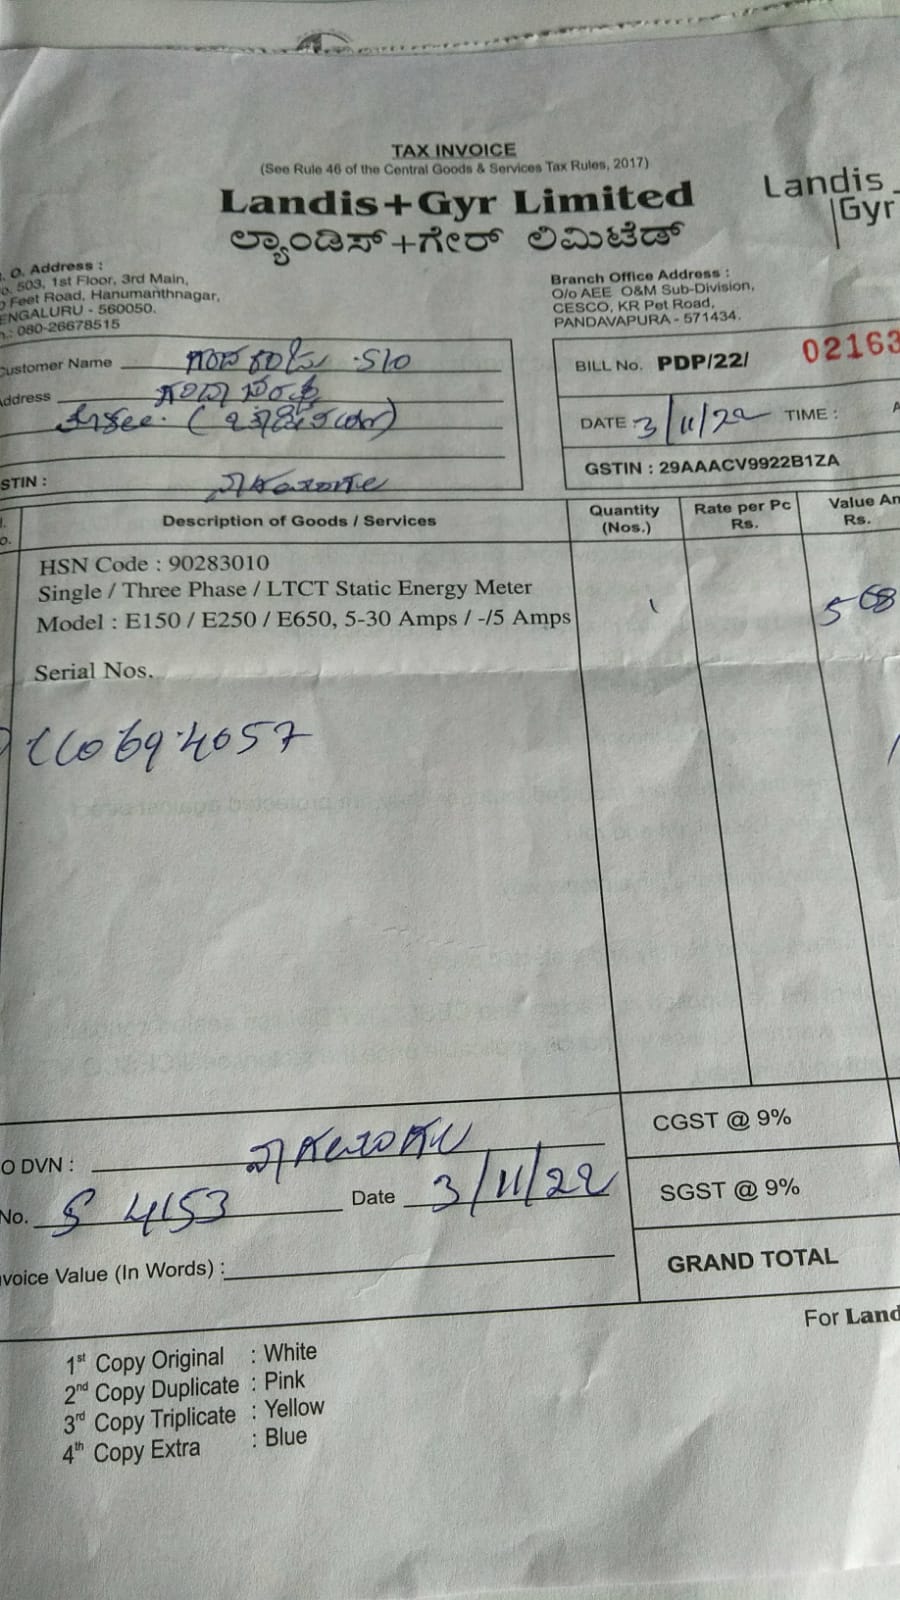 TAX INVOICE
(See Rule 46 of the Central Goods & Services Tax Rules, 2017)
Landis+Gyr Limited
ಲ್ಯಾಂಡಿಸ್+ಗೇರ್ ಲಿಮಿಟೆಡ್
Landis
Gyr
. O. Address :
o. 503, 1st Floor, 3rd Main,
0 Feet Road, Hanumanthnagar,
ENGALURU - 560050.
n.: 080-26678515
Branch Office Address :
O/o AEE O&M Sub-Division,
CESCO, KR Pet Road,
PANDAVAPURA - 571434.
ustomer Name S/o
ddress
STIN :
BILL No. PDP/22/ 02163
DATE : 3/11/22 TIME : A
GSTIN : 29AAACV9922B1ZA
l.
o.
Description of Goods / Services
Quantity
(Nos.)
Rate per Pc
Rs.
Value An
Rs.
HSN Code : 90283010
Single / Three Phase / LTCT Static Energy Meter
Model : E150 / E250 / E650, 5-30 Amps / -/5 Amps
1
568
Serial Nos.
O DVN :
No. S 4153 Date 3/11/22
nvoice Value (In Words) :
CGST @ 9%
SGST @ 9%
GRAND TOTAL
For Land
1st Copy Original : White
2nd Copy Duplicate : Pink
3rd Copy Triplicate : Yellow
4th Copy Extra : Blue